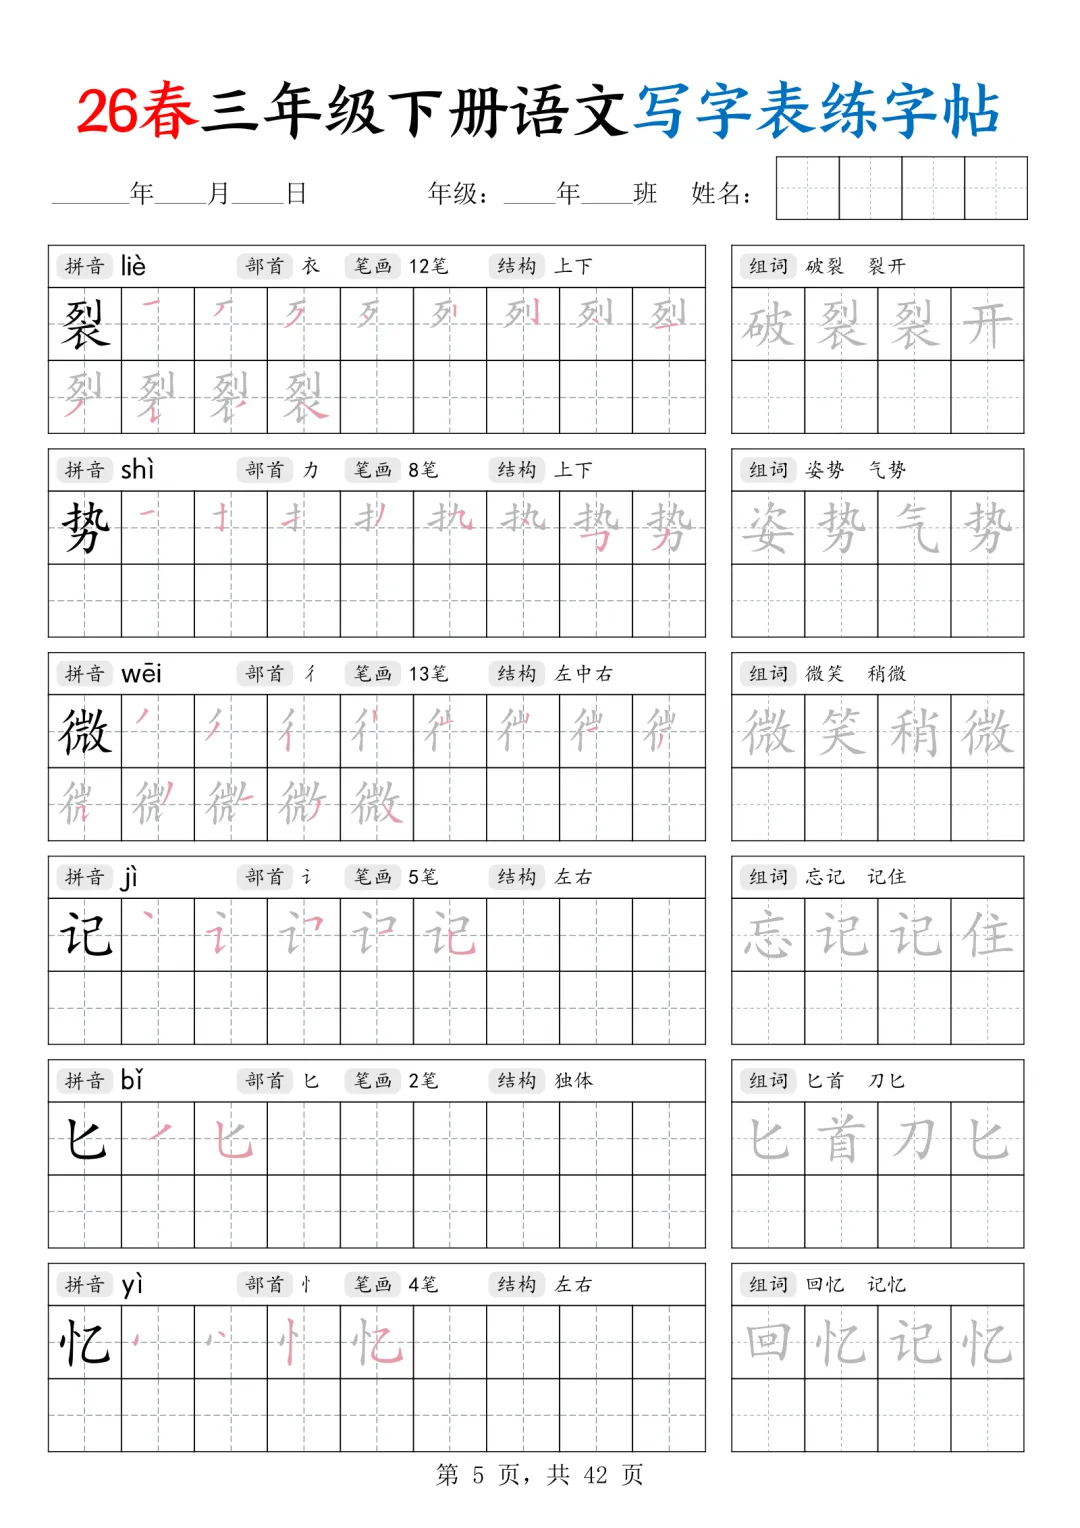 26春三年级下册语文写字表练字帖
______年____月____日 年级：____年____班 姓名：
拼音 liè 部首 衣 笔画 12笔 结构 上下
裂
组词 破裂 裂开
破裂裂开
拼音 shì 部首 力 笔画 8笔 结构 上下
势
组词 姿势 气势
姿势气势
拼音 wēi 部首 彳 笔画 13笔 结构 左中右
微
组词 微笑 稍微
微笑稍微
拼音 jì 部首 讠 笔画 5笔 结构 左右
记
组词 忘记 记住
忘记记住
拼音 bǐ 部首 匕 笔画 2笔 结构 独体
匕
组词 匕首 刀匕
匕首刀匕
拼音 yì 部首 忄 笔画 4笔 结构 左右
忆
组词 回忆 记忆
回忆记忆
第 5 页，共 42 页